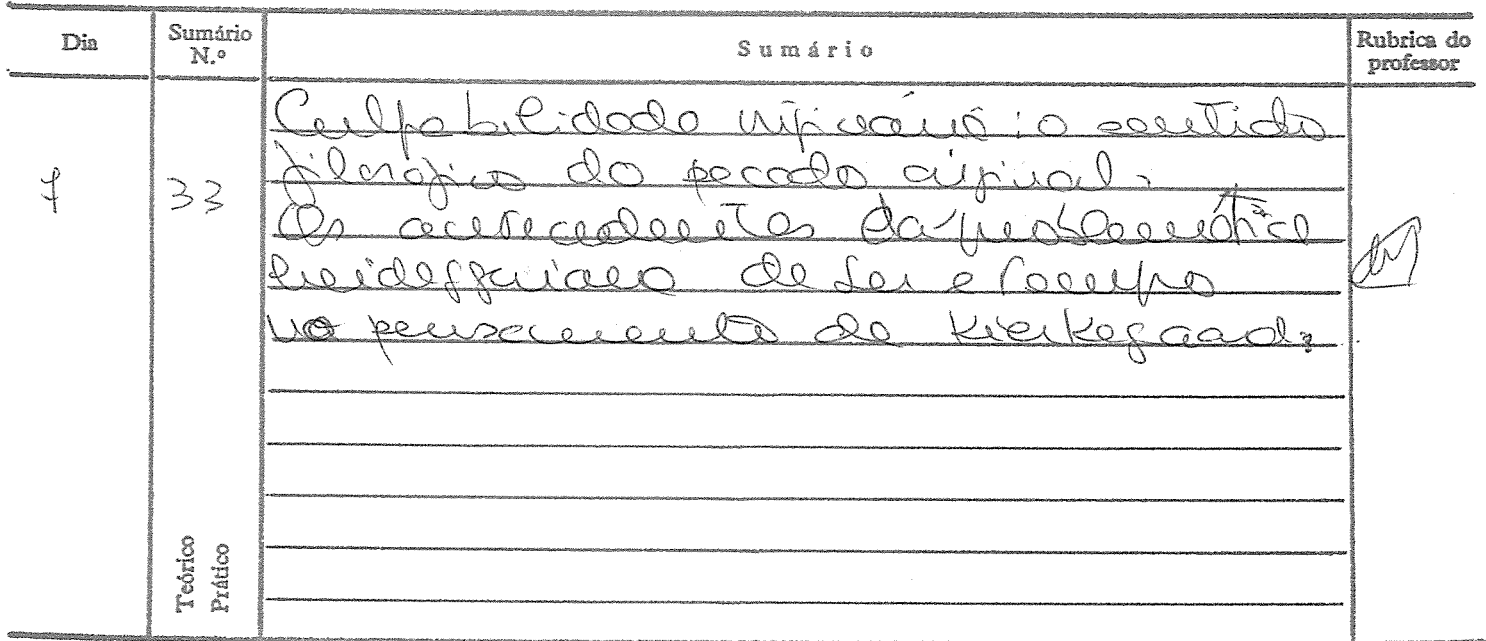 Dia Sumário N.º Sumário Rubrica do professor
7 33
Culpabilidade originária: o sentido
filosófico do pecado original.
Os antecedentes da problemática
heideggeriana de Ser e Tempo
no pensamento de Kierkegaard.
Teórico
Prático